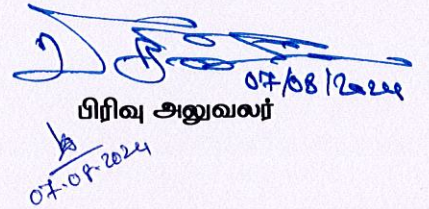 07/08/2024
பிரிவு அலுவலர்
07.08.2024